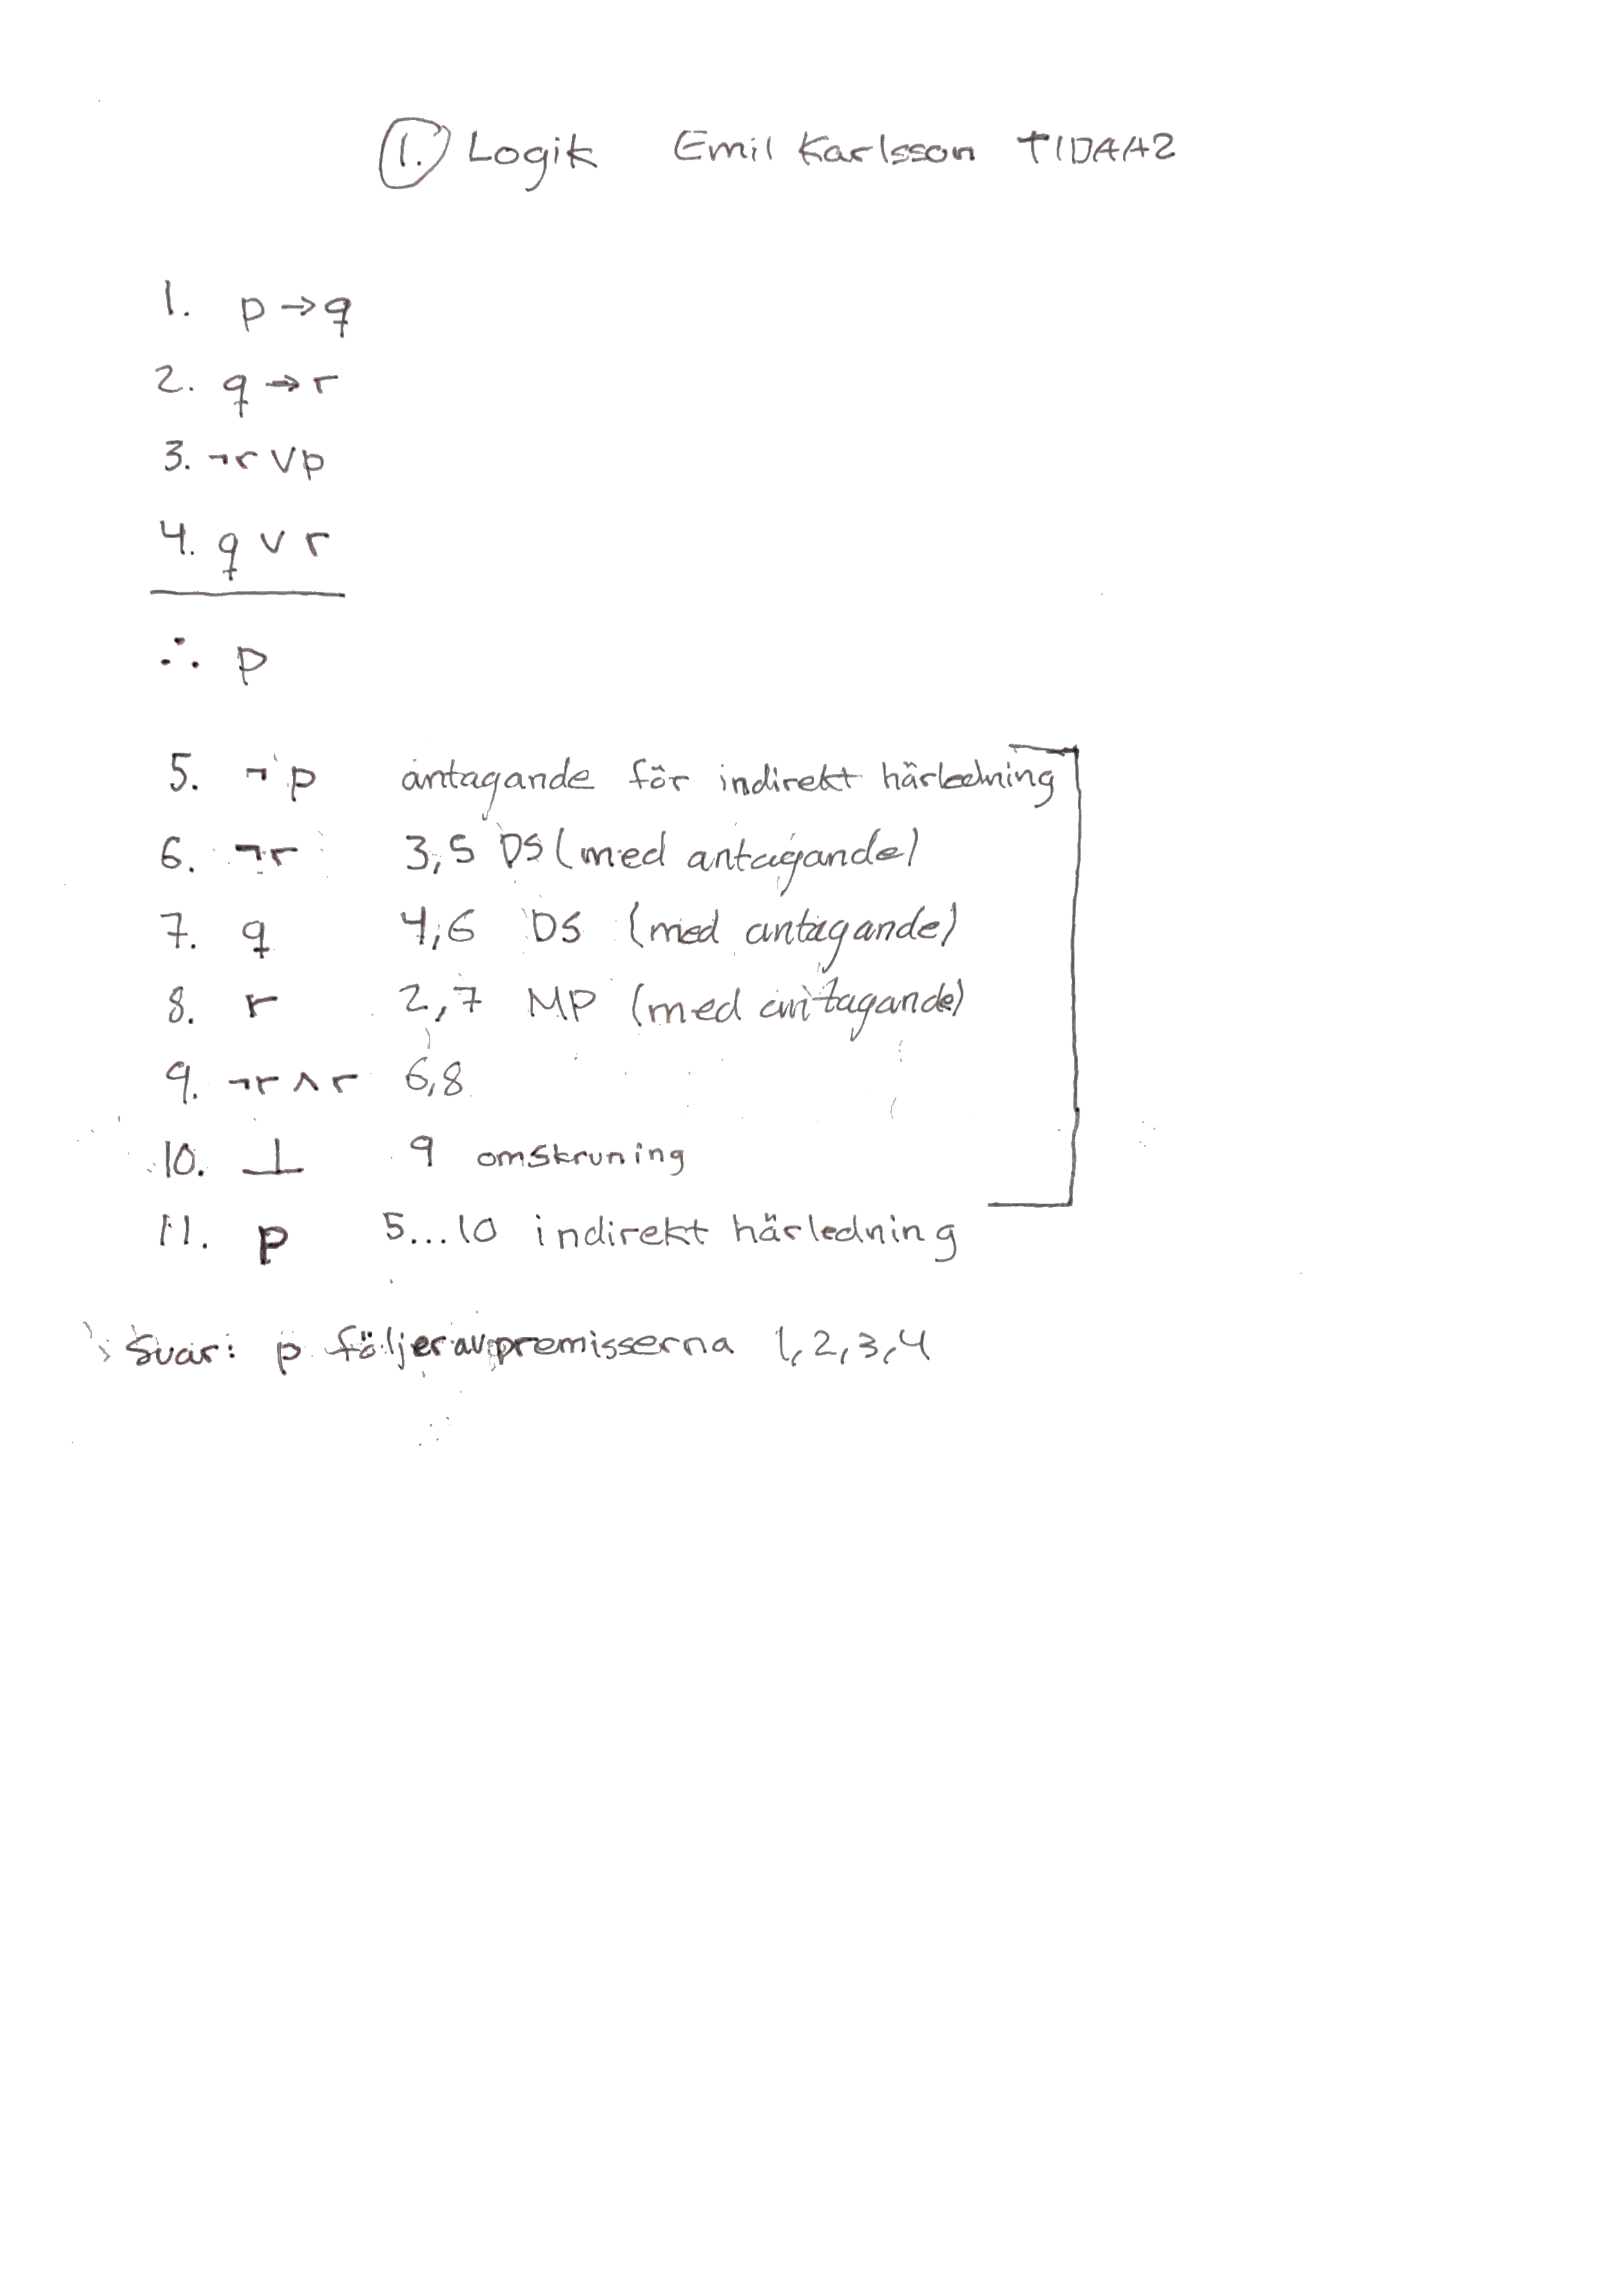 1. Logik Emil Karlsson TIDAA2
1. p → q
2. q → r
3. ¬r ∨ p
4. q ∨ r
∴ p
5. ¬p antagande för indirekt härledning
6. ¬r 3,5 DS (med antagande)
7. q 4,6 DS (med antagande)
8. r 2,7 MP (med antagande)
9. ¬r ∧ r 6,8
10. ⊥ 9 omskrivning
11. p 5...10 indirekt härledning
Svar: p följer av premisserna 1,2,3,4